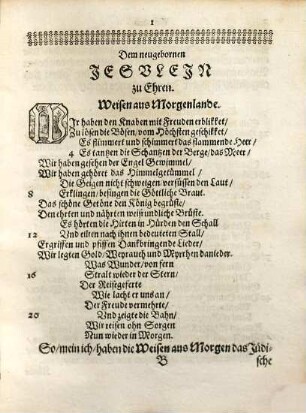 1
Dem neugebornen
JESULEIN
zu Ehren.
Weisen aus Morgenlande.
WIr haben den Knaben mit Freuden erblikket/
Zu lösen die Bösen/ vom Höchsten geschikket/
Es flimmert und schlimmert das flammende Heer/
4 Es tantzen die Schantzen der Berge/ das Meer/
Wir haben gesehen der Engel Gewimmel/
Wir haben gehöret das Himmelgetümmel/
Die Geigen nicht schweigen versüssen den Laut/
8 Erklingen/ besingen die Göttliche Braut.
Das schöne Getöne den König begrüste/
Den ehrten und nährten weißwundliche Brüste.
Es hörten die Hirten in Hürden den Schall
12 Und eilten nach ihnen bedeuteten Stall/
Ergriffen und pfiffen Dankbringende Lieder/
Wir legten Gold/ Weyrauch und Myrrhen danieder.
Was Wunder/ von fern
16 Stralt wieder der Stern/
Der Reisegeferte
Wie lacht er uns an/
Der Freude vermehrte/
20 Und zeigte die Bahn/
Wir reisen ohn Sorgen
Nun wieder in Morgen.
So/ mein ich/ haben die Weisen aus Morgen das Jüdi-
B sche